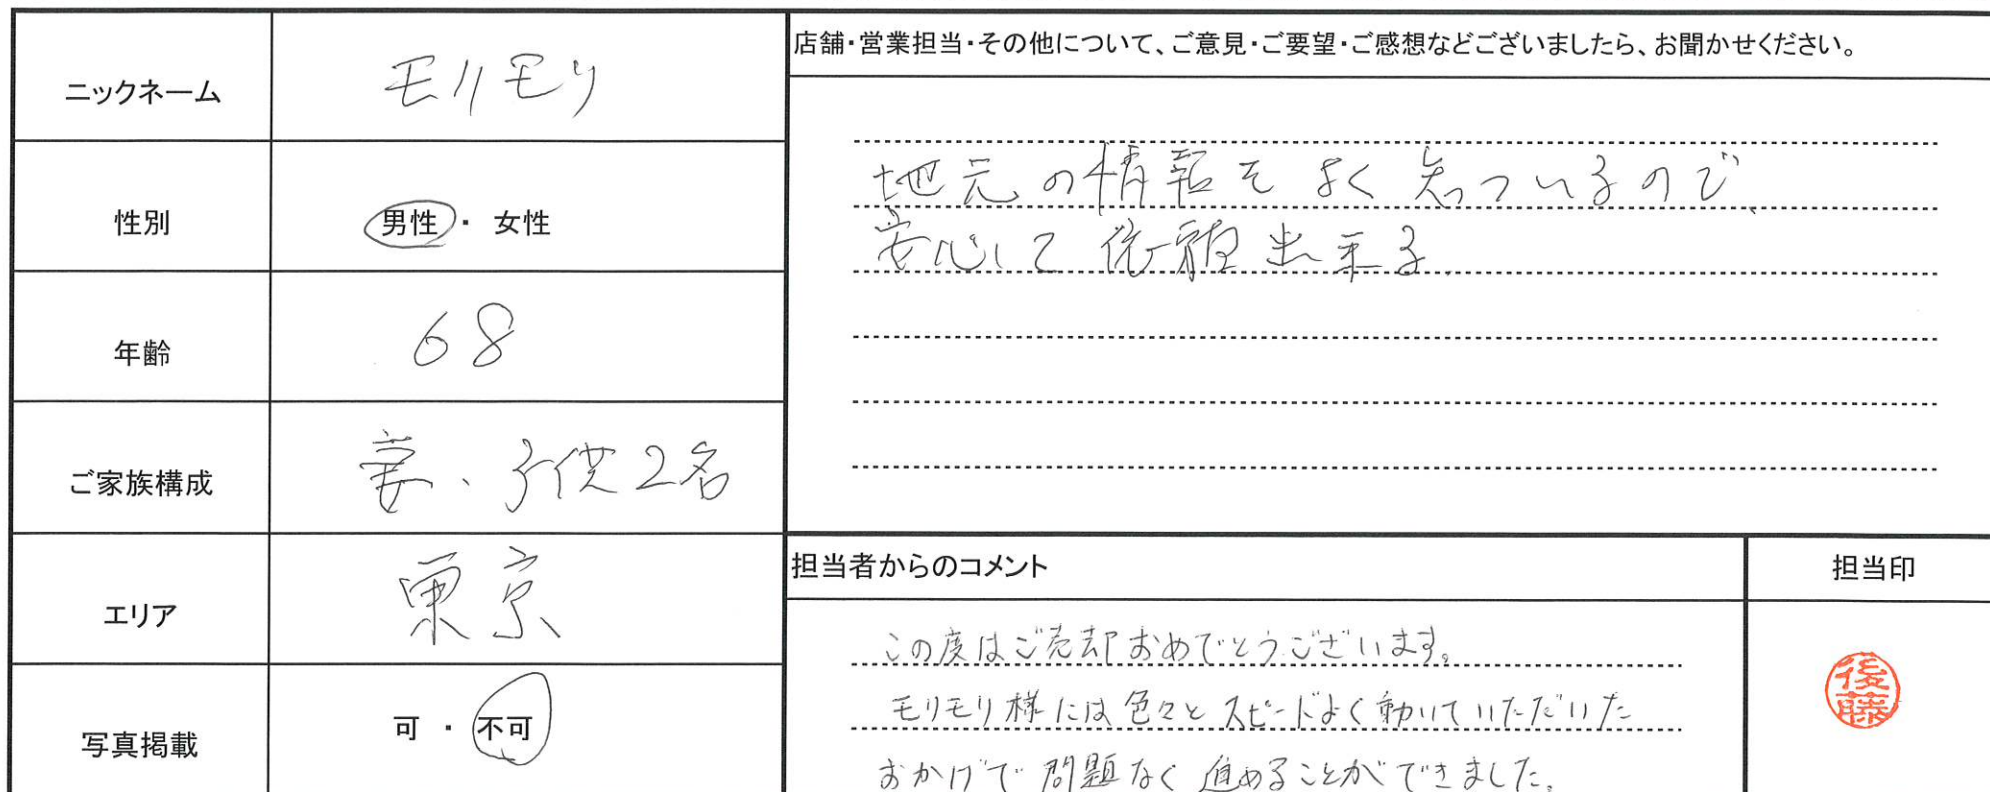 ニックネーム
モリモリ
性別
男性・女性
年齢
68
ご家族構成
妻、子供2名
エリア
東京
写真掲載
可・不可
店舗・営業担当・その他について、ご意見・ご要望・ご感想などございましたら、お聞かせください。
地元の情報をよく知っているので、
安心して依頼出来る.
担当者からのコメント
この度はご売却おめでとうございます。
モリモリ様には色々とスピードよく動いていただいた
おかげで問題なく進めることができました。
担当印
後藤